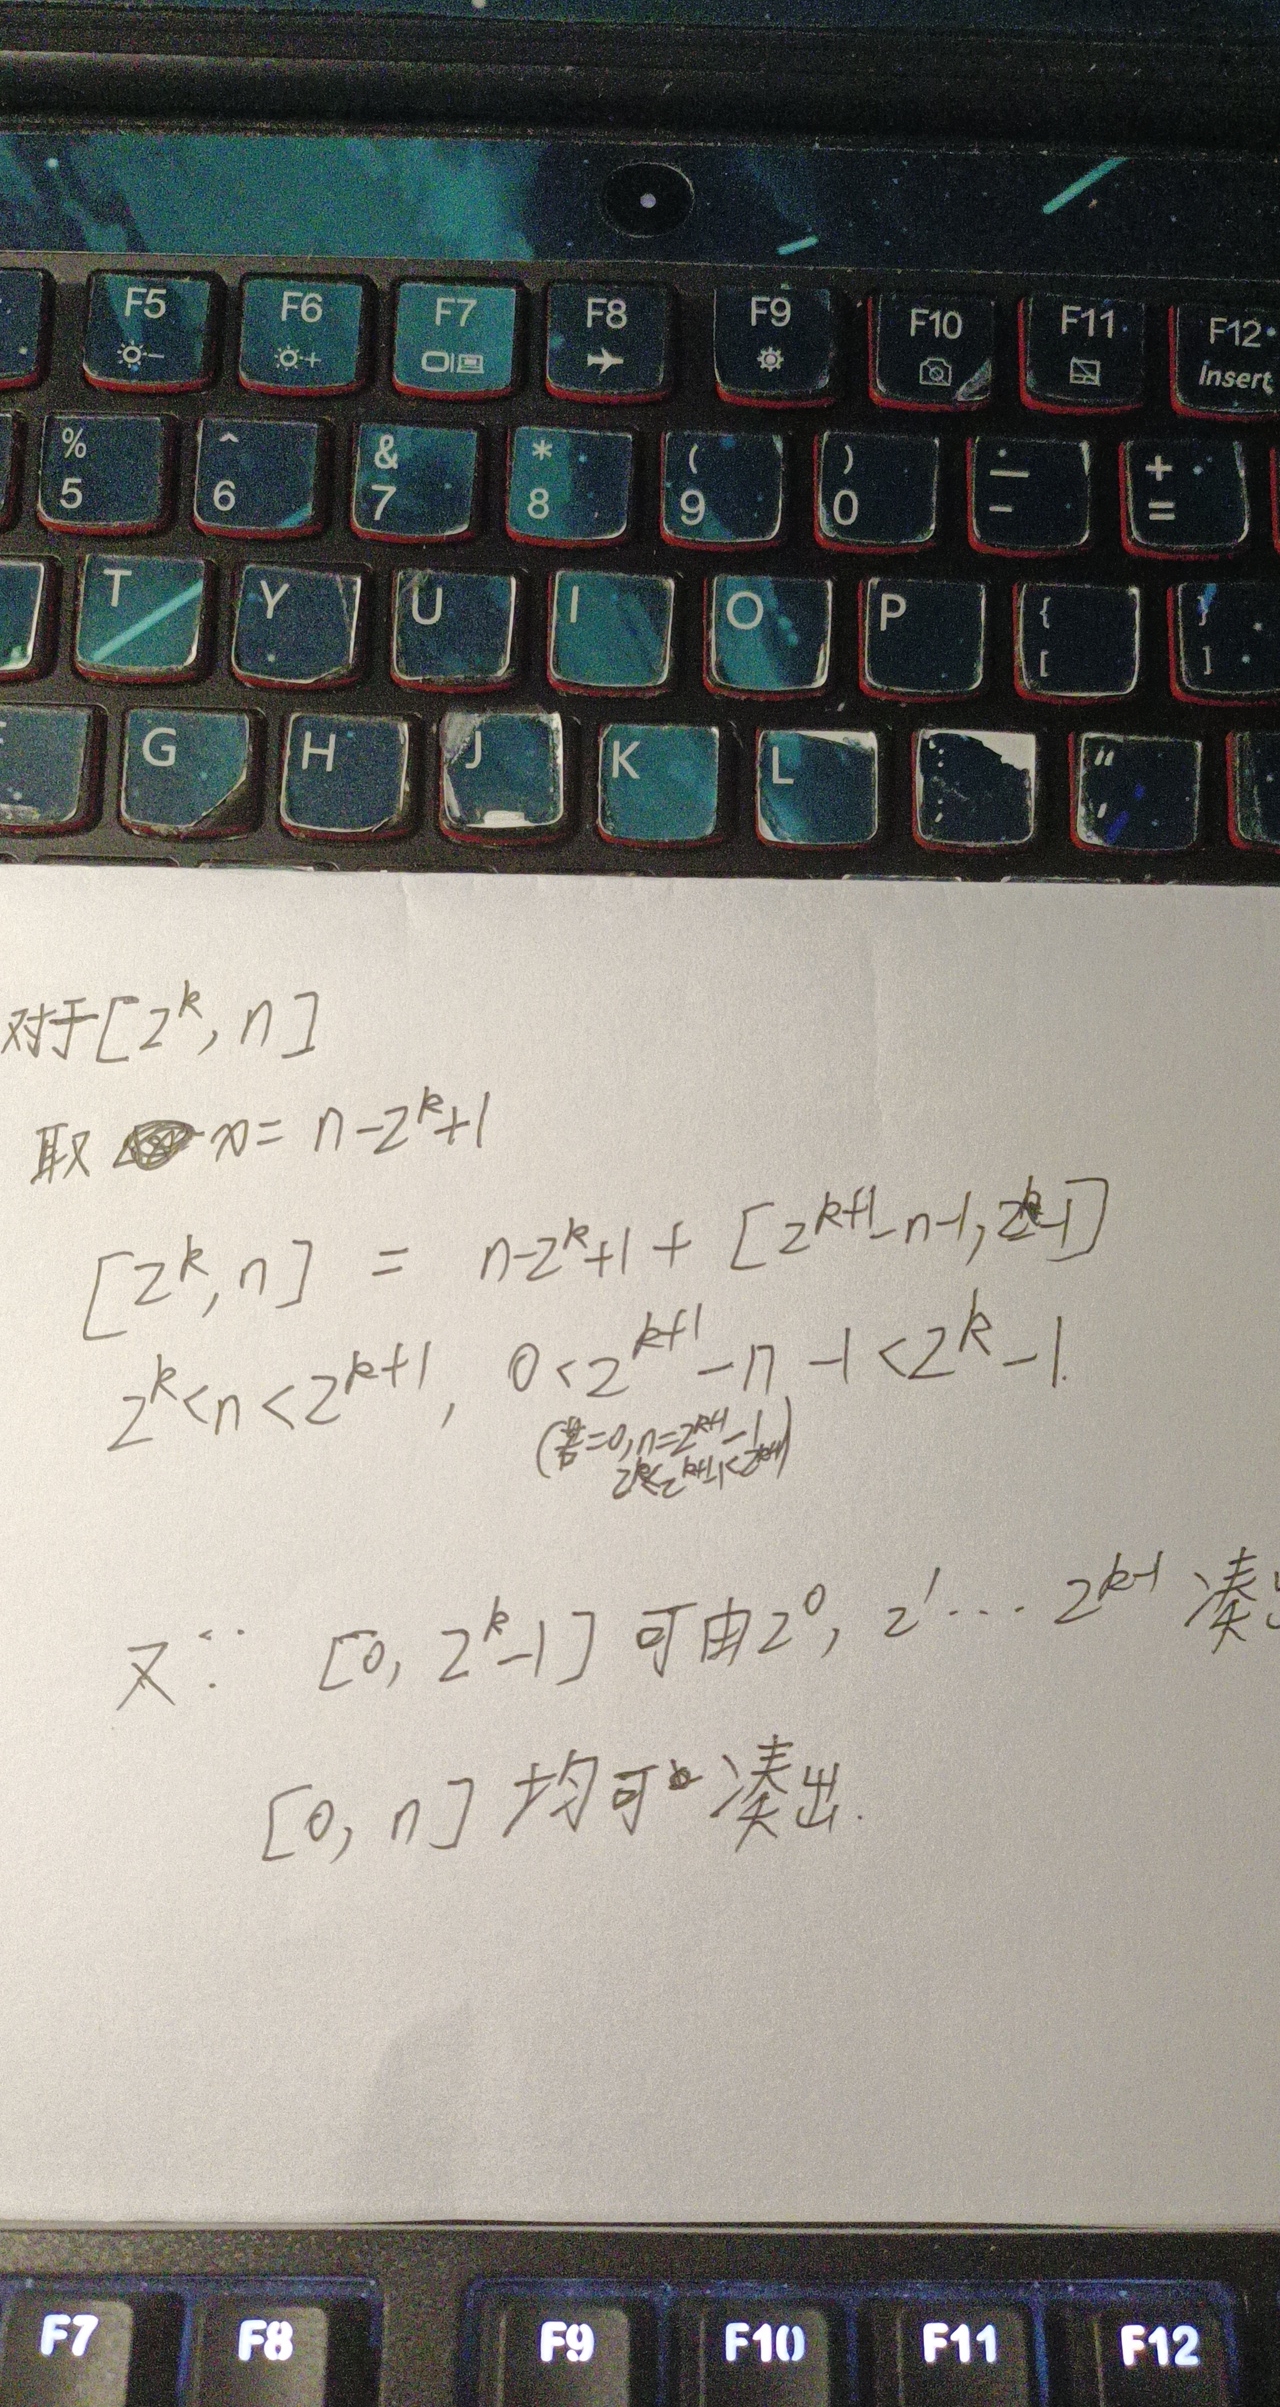 F5 F6 F7 F8 F9 F10 F11 F12
Insert
% ^ & * ( ) — +
5 6 7 8 9 0 - =
T Y U I O P { }
[ ]
G H J K L : "
; '
对于[2^k, n]
取 x= n-2^k+1
[2^k, n] = n-2^k+1 + [2^{k+1}-n-1, 2^k-1]
2^k<n<2^{k+1}, 0<2^{k+1}-n-1<2^k-1.
(若=0, n=2^{k+1}-1
2^k<2^{k+1}-1<2^{k+1})
又∵ [0, 2^k-1] 可由2^0, 2^1... 2^{k-1} 凑
[0, n] 均可凑出.
F7 F8 F9 F10 F11 F12